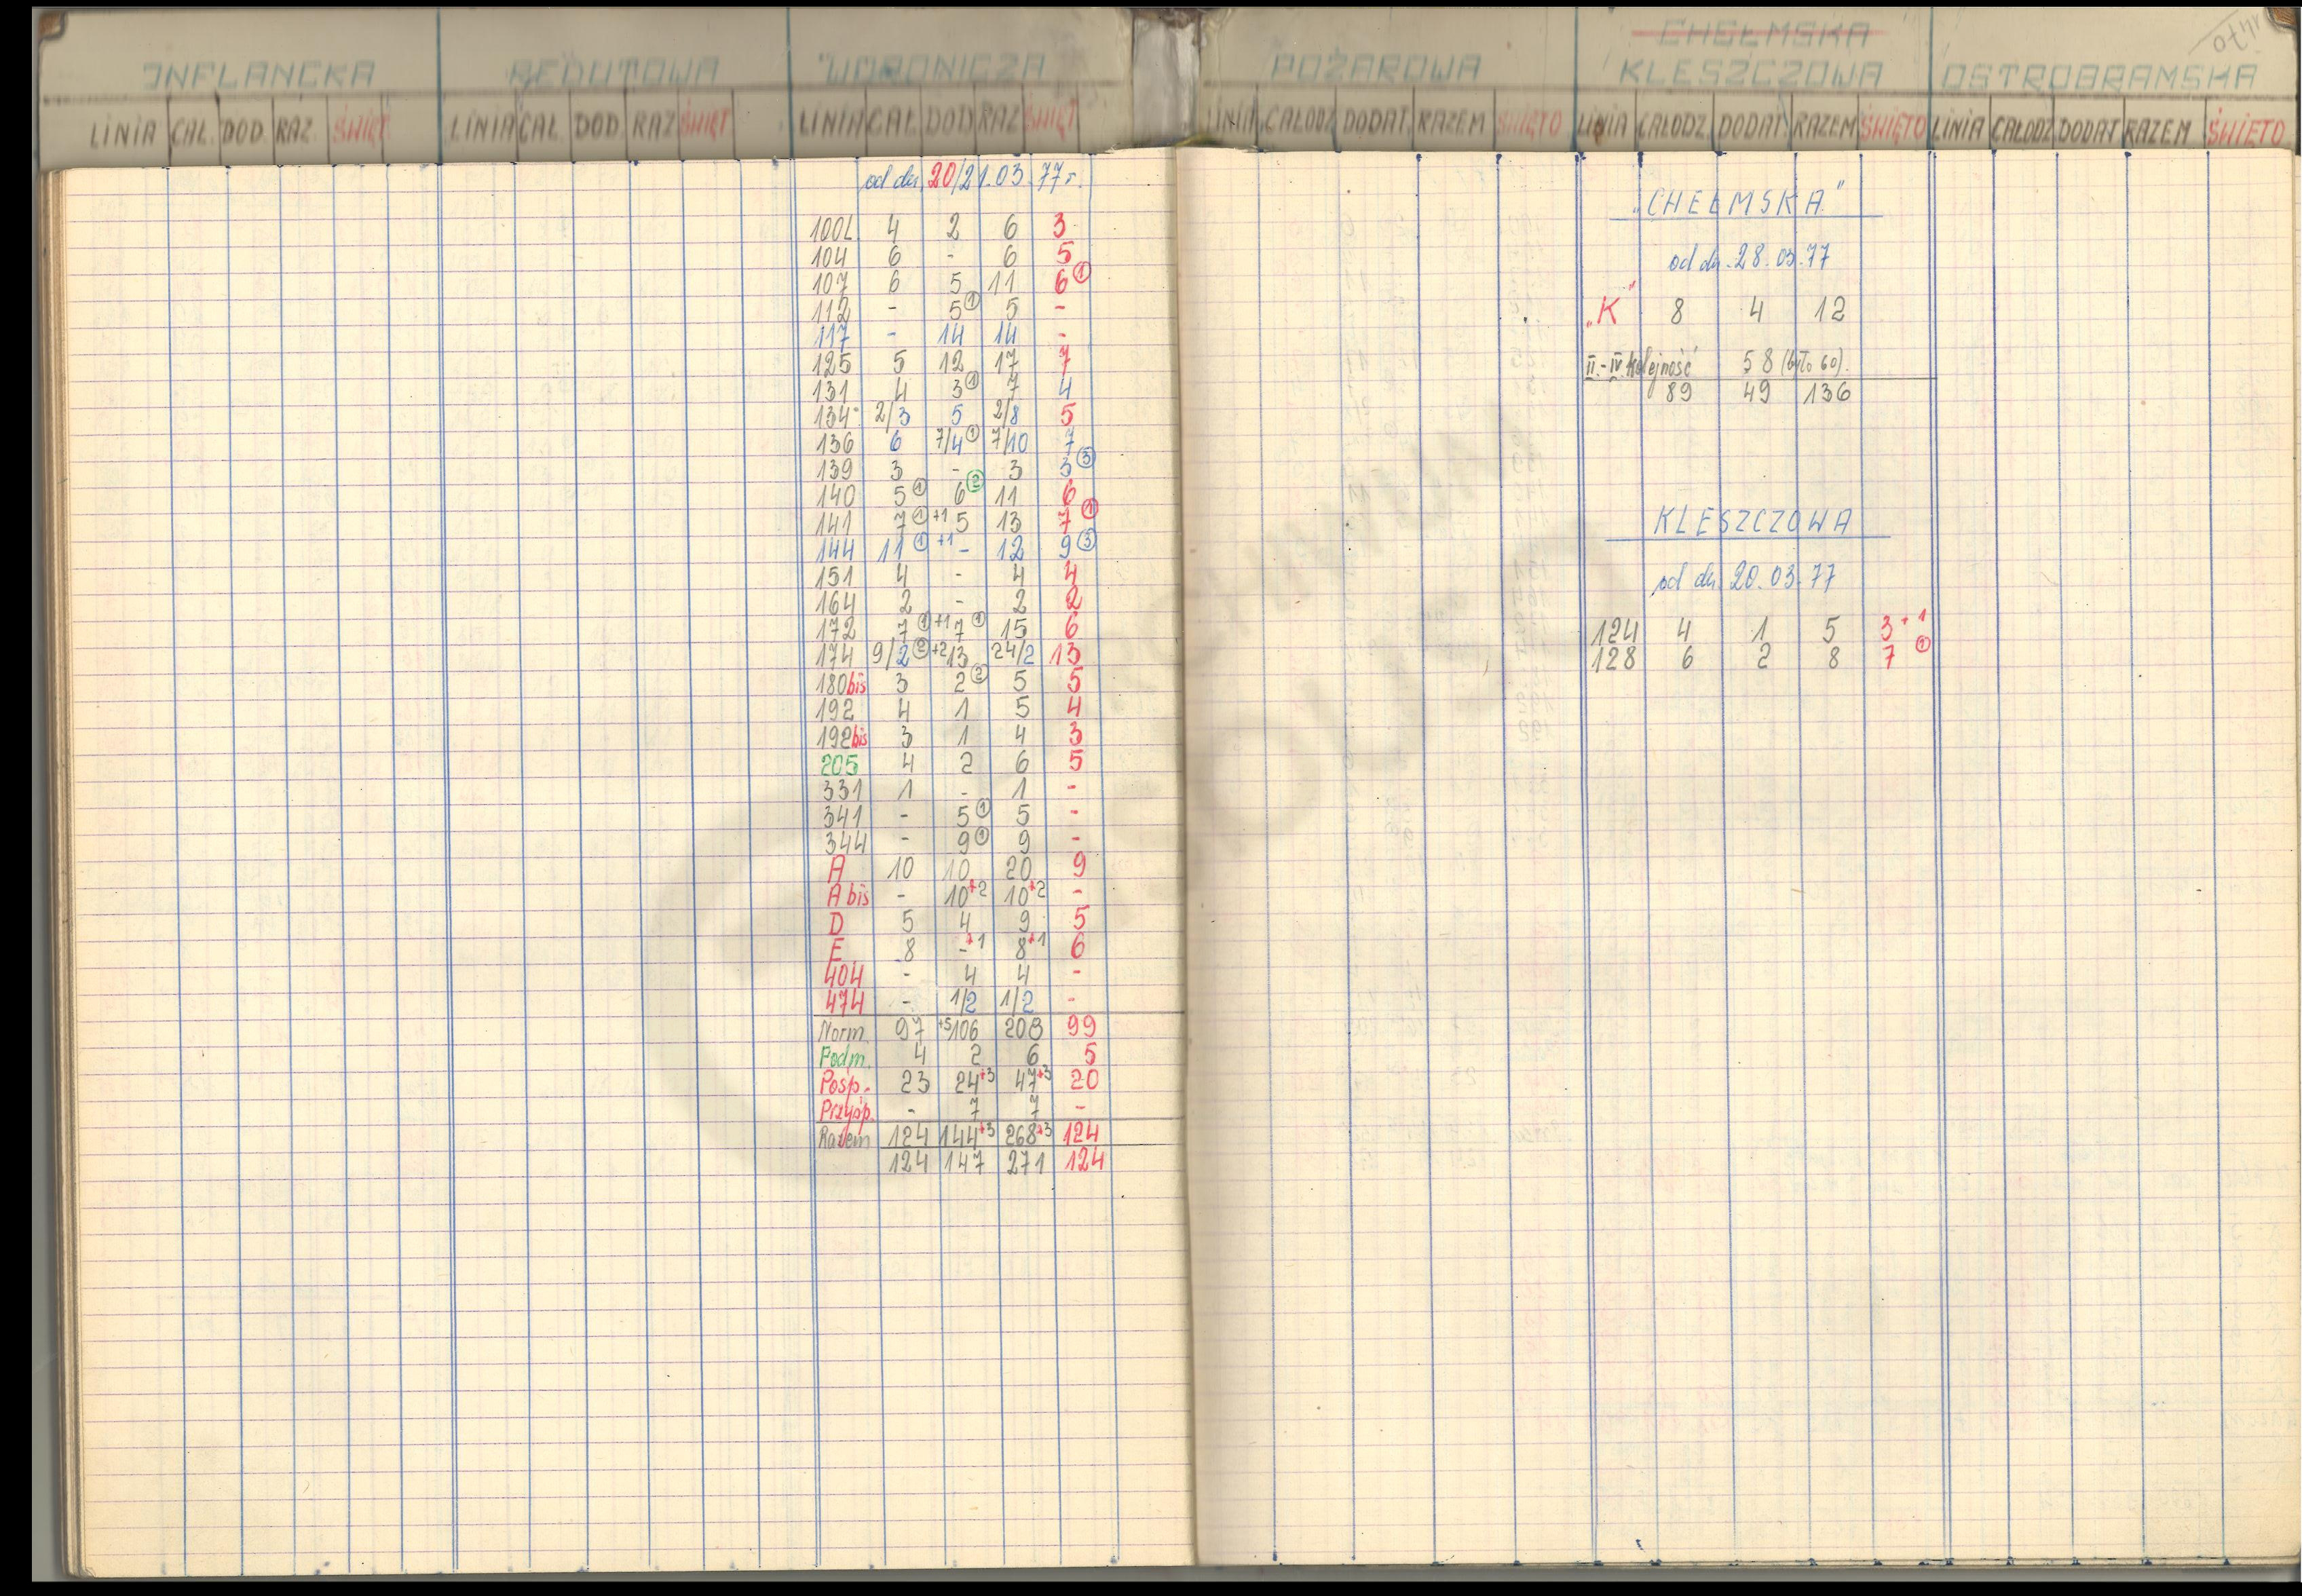 INFLANCKA REDUTOWA WORONICZA POŻAROWA CHEŁMSKA KLESZCZOWA OSTROBRAMSKA
LINIA CAŁ. DOD. RAZ. ŚWIĘT LINIA CAŁ. DOD RAZ ŚWIĘT LINIA CAŁ. DOD RAZ ŚWIĘT LINIA CAŁODZ DODAT. RAZEM ŚWIĘTO LINIA CAŁODZ. DODAT. RAZEM ŚWIĘTO LINIA CAŁODZ DODAT RAZEM ŚWIĘTO
od dn. 20/21.03.77 r.
100L 4 2 6 3
104 6 - 6 5
107 6 5 11 6 ①
112 - 5 ① 5 -
117 - 14 14 -
125 5 12 17 7
131 4 3 ① 7 4
134 2/3 5 2/8 5
136 6 7/4 ① 7/10 7
139 3 - 3 3 ③
140 5 ① 6 ② 11 6
141 7 ① +1 5 13 7 ①
144 11 ① +1 - 12 9 ③
151 4 - 4 4
164 2 - 2 2
172 7 ① +1 7 ① 15 6
174 9/2 ② +2 13 24/2 13
180bis 3 2 ② 5 5
192 4 1 5 4
192bis 3 1 4 3
205 4 2 6 5
331 1 - 1 -
341 - 5 ① 5 -
344 - 9 ① 9 -
A 10 10 20 9
A bis - 10+2 10+2 -
D 5 4 9 5
E 8 -+1 8+1 6
404 - 4 4 -
474 - 1/2 1/2 -
Norm. 97 +5 106 208 99
Podm. 4 2 6 5
Posp. 23 24+3 47+3 20
Przysp. - 7 7 -
Razem 124 144+3 268+3 124
124 147 271 124
„CHEŁMSKA"
od dn. 28.03.77
„K" 8 4 12
II-IV kolejność 58 (było 60).
89 49 136
KLESZCZOWA
od dn. 20.03.77
124 4 1 5 3+1
128 6 2 8 7 ①